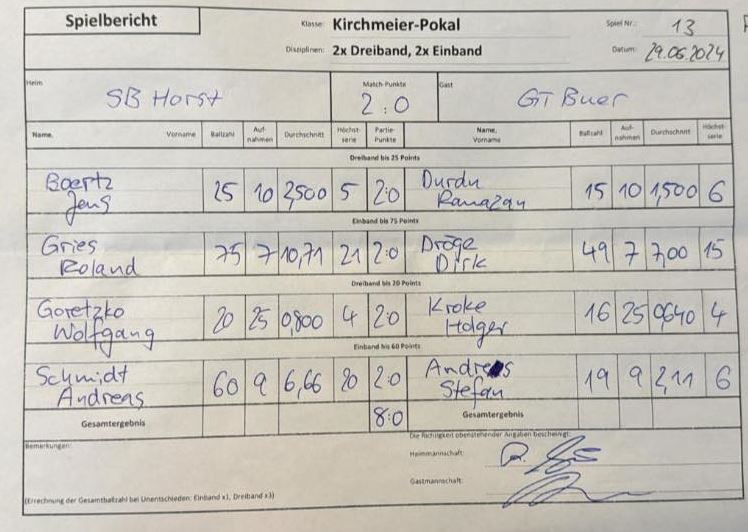 Spielbericht
Klasse: Kirchmeier-Pokal
Spiel Nr.: 13
Disziplinen: 2x Dreiband, 2x Einband
Datum: 29.06.2024
Heim Match-Punkte Gast
SB Horst 2:0 GT Buer
Name, Vorname Ballzahl Auf-nahmen Durchschnitt Höchst-serie Partie-Punkte Name, Vorname Ballzahl Auf-nahmen Durchschnitt Höchst-serie
Dreiband bis 25 Points
Boertz 25 10 2,500 5 2:0 Durdu 15 10 1,500 6
Jens Ramazan
Einband bis 75 Points
Gries 75 7 10,71 21 2:0 Dröge 49 7 7,00 15
Roland Dirk
Dreiband bis 20 Points
Goretzko 20 25 0,800 4 2:0 Kroke 16 25 0,640 4
Wolfgang Holger
Einband bis 60 Points
Schmidt 60 9 6,66 20 2:0 Andres 19 9 2,11 6
Andreas Stefan
Gesamtergebnis 8:0 Gesamtergebnis
Bemerkungen:
Die Richtigkeit obenstehender Angaben bescheinigt:
Heimmannschaft:
Gastmannschaft:
(Errechnung der Gesamtballzahl bei Unentschieden: Einband x1, Dreiband x3)